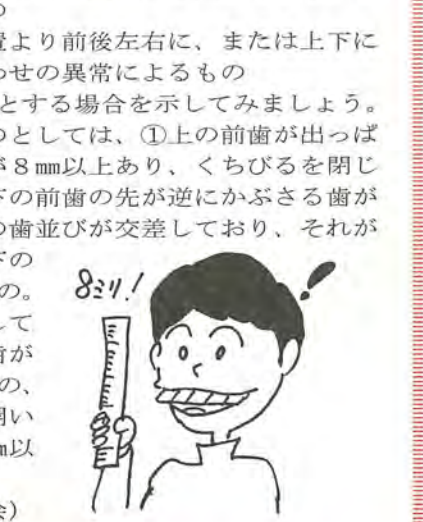 の
置より前後左右に、または上下に
わせの異常によるもの
とする場合を示してみましょう。
つとしては、①上の前歯が出っぱ
が8㎜以上あり、くちびるを閉じ
下の前歯の先が逆にかぶさる歯が
の歯並びが交差しており、それが
下の
の。
して
歯が
の、
開い
㎜以
会)
8ミリ!
!